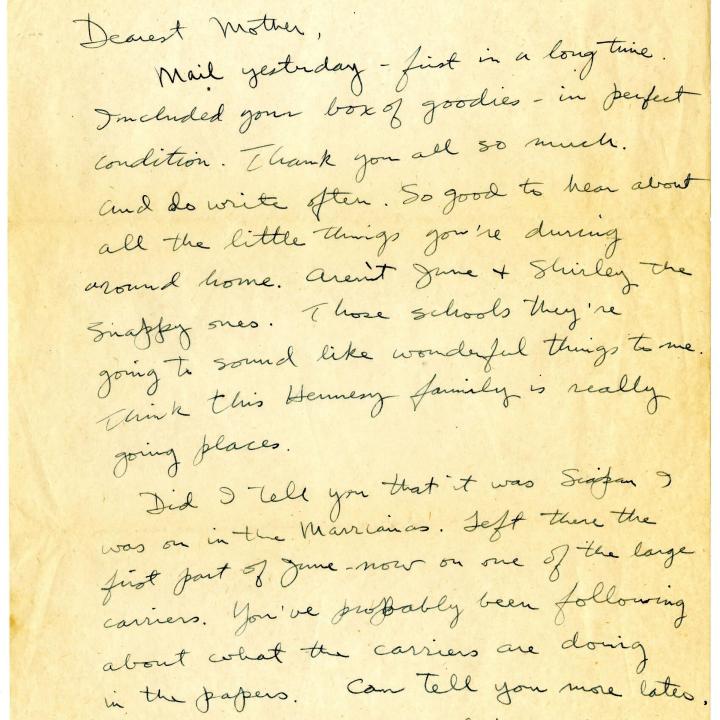 Dearest Mother,
Mail yesterday - first in a long time.
Included your box of goodies - in perfect
condition. Thank you all so much.
and do write often. So good to hear about
all the little things you're during
around home. Aren't June + Shirley the
snappy ones. Those schools they're
going to sound like wonderful things to me.
Think this Hennesy family is really
going places.
Did I tell you that it was Siapan I
was on in the Marrianas. Left there the
first part of June - now on one of the large
carriers. You've probably been following
about what the carriers are doing
in the papers. Can tell you more later.